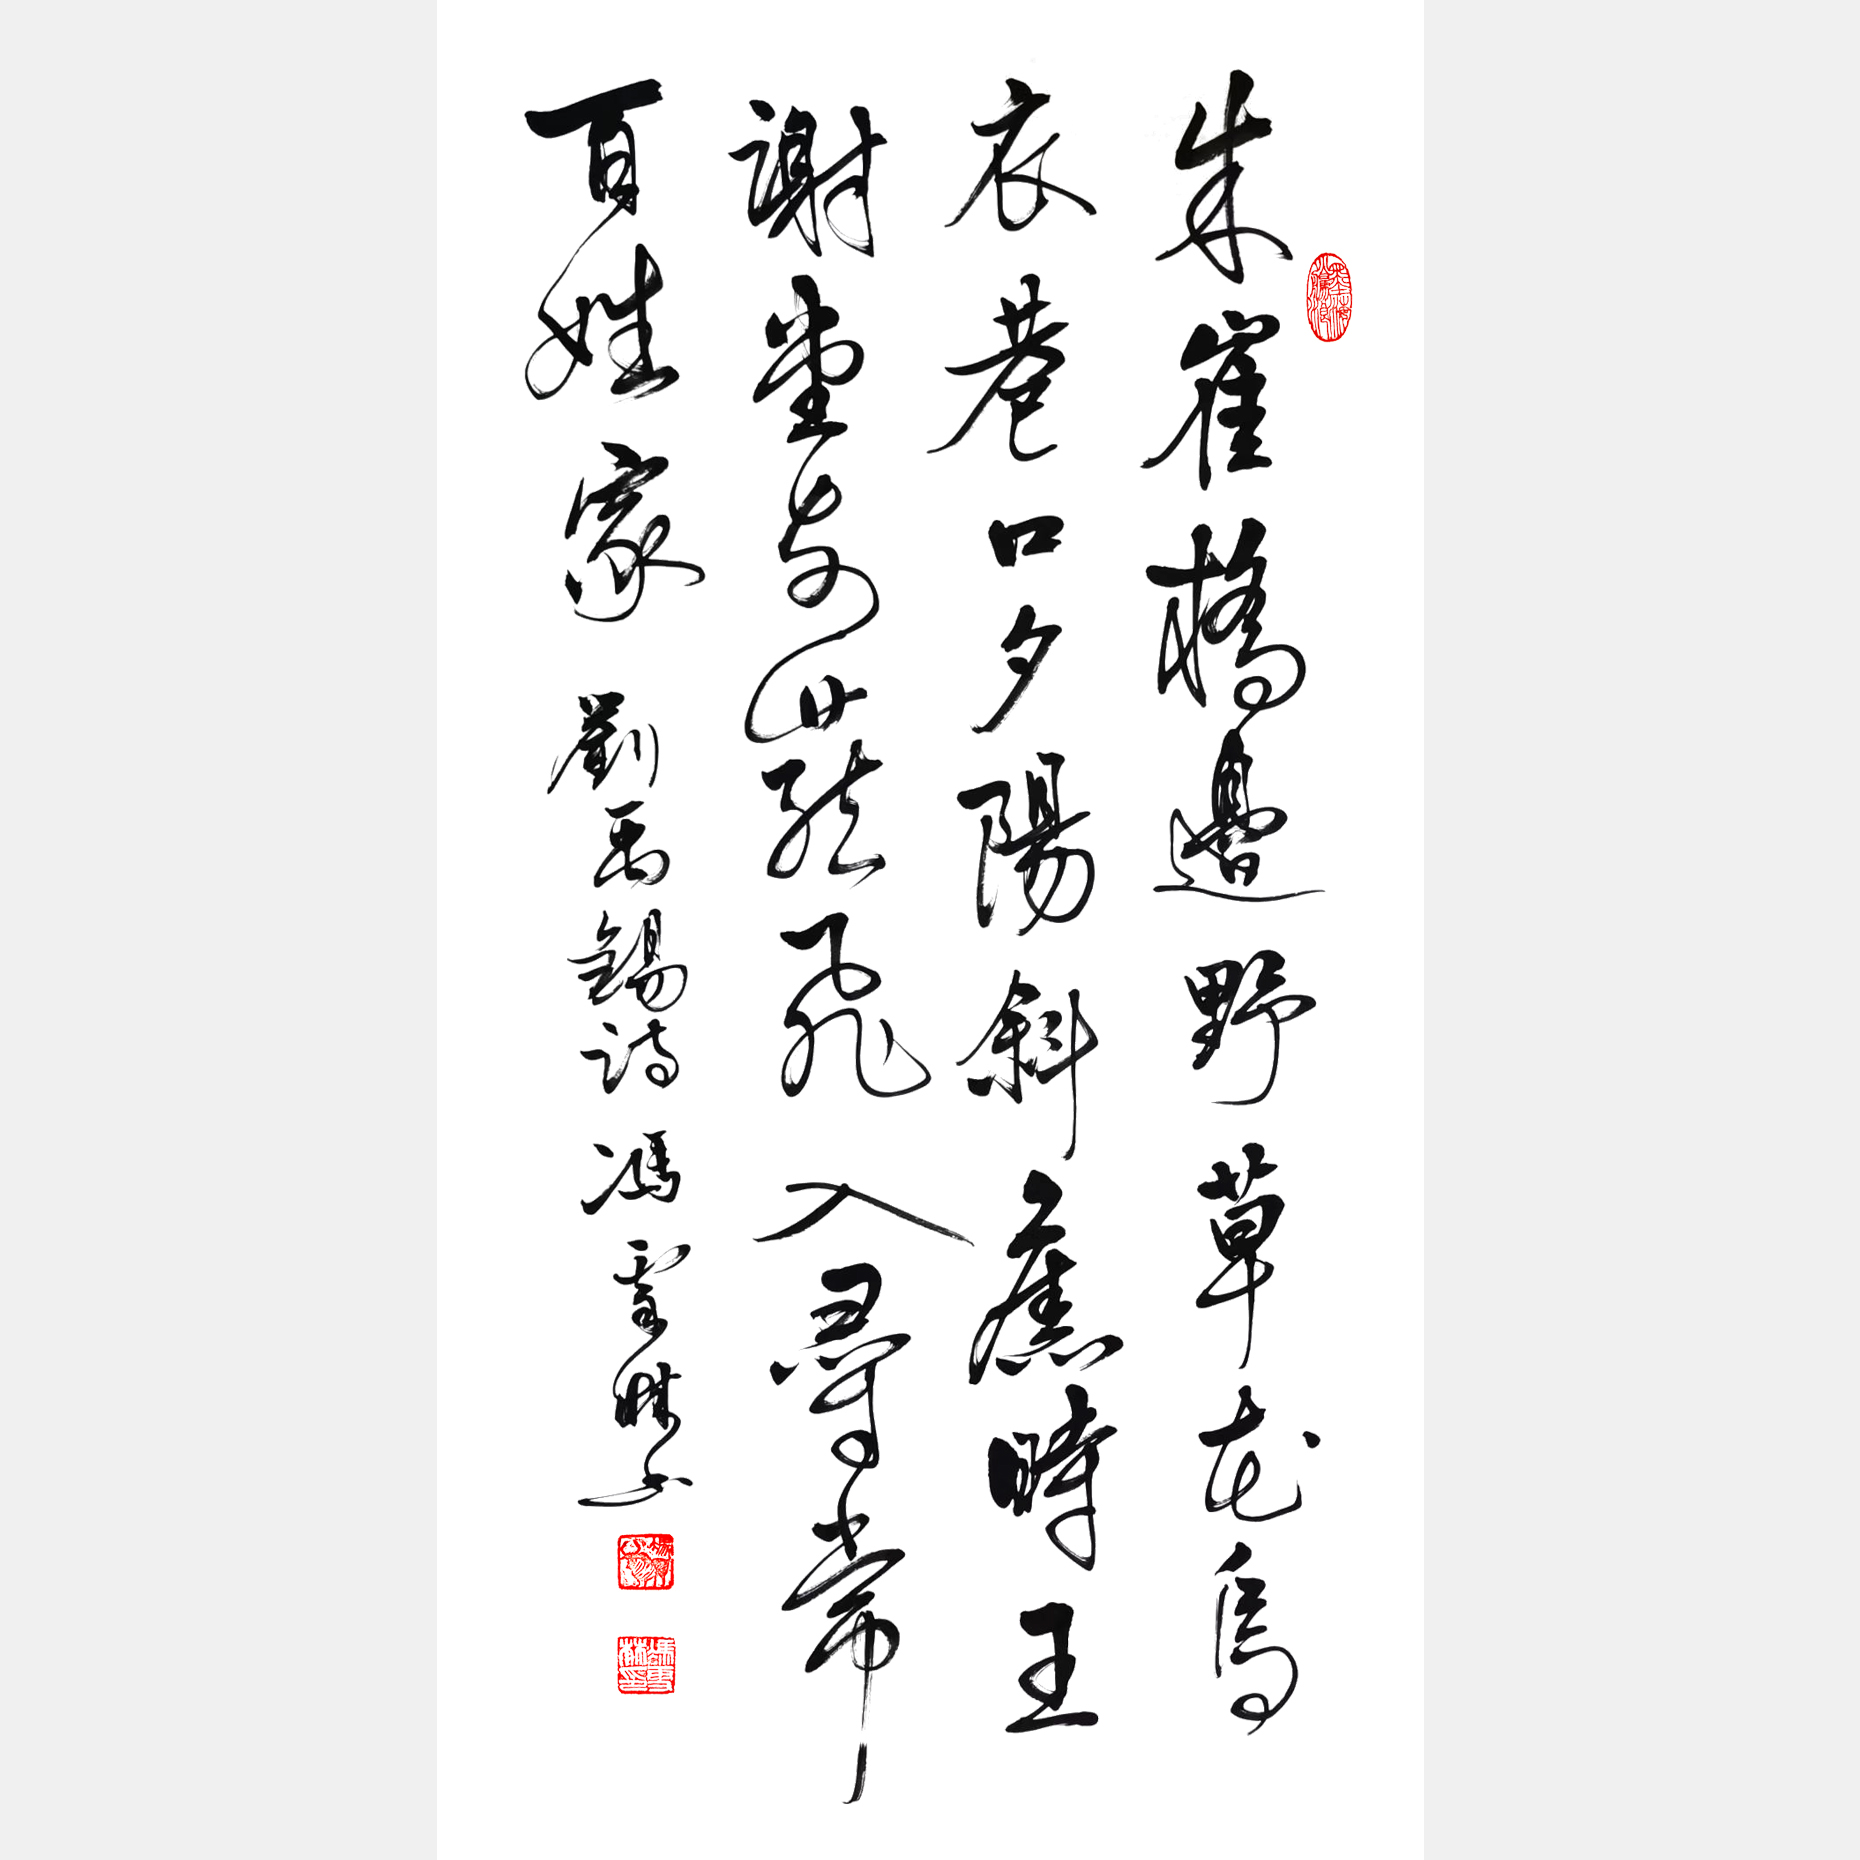 朱雀橋邊野草花烏
衣巷口夕陽斜舊時王
謝堂前燕飛入尋常
百姓家 劉禹錫詩 馮雪林书
馮雪林印